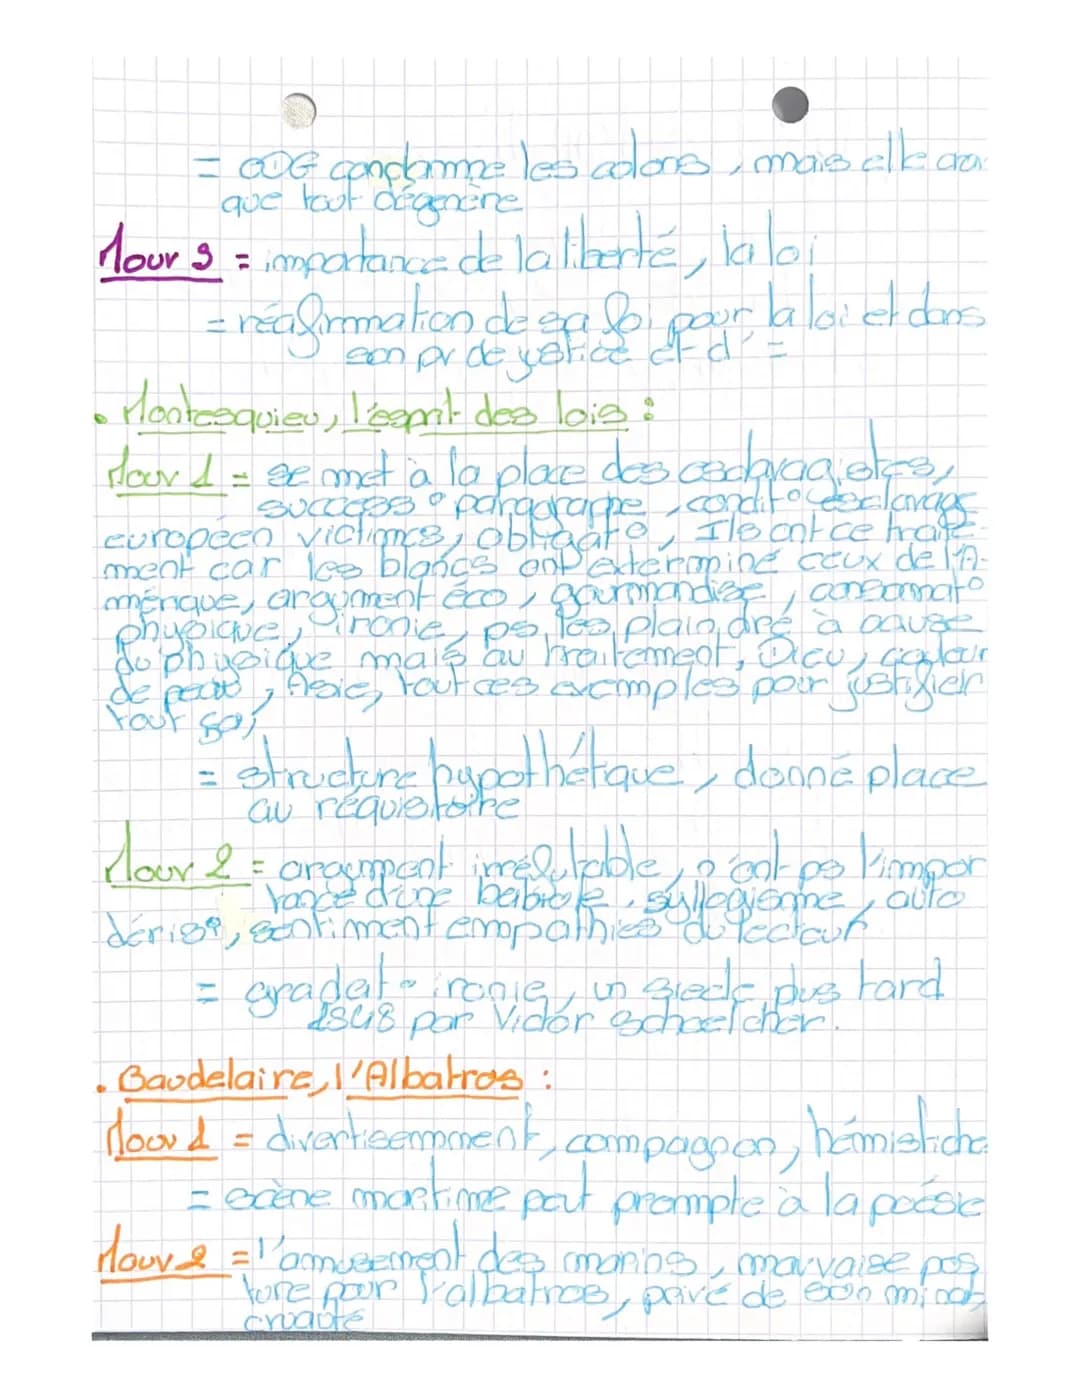 = ODG condamne les colons, mais elle
que tout dégénère
Mouv 3 = importance de la liberté, la loi
= réafirmation de sa foi pour la loi et dans
son pv de justice et d' =
• Montesquieu, l'esprit des lois :
Mouv 1 = se met à la place des esclavagistes,
success° paragraphe, condit° esclavage
européen victimes, obligat°, Ils ont ce traite-
ment car les blancs ont exterminé ceux de l'A-
mérique, argument éco, gourmandise, consommat°
physique, ironie, ps les plaindre à cause
du physique mais au traitement, Dieu, couleur
de peau, Asie, tout ces exemples pour justifier
tout ça,
= structure hypothétique, donne place
au réquisitoire
Mouv 2 = argument irréfutable, n'ont ps l'impor
tance d'une babiole, syllogisme, auto
déris°, sentiment empathies du lecteur
= gradat° ironie, un siècle plus tard
1848 par Victor Schoelcher.
• Baudelaire, l'Albatros :
Mouv 1 = divertisemment, compagnon, hémistiche
= scène maritime peut prompte à la poésie
Mouv 2 = l'amusement des marins, mauvaise pos
ture pour l'albatros, privé de son
cruauté